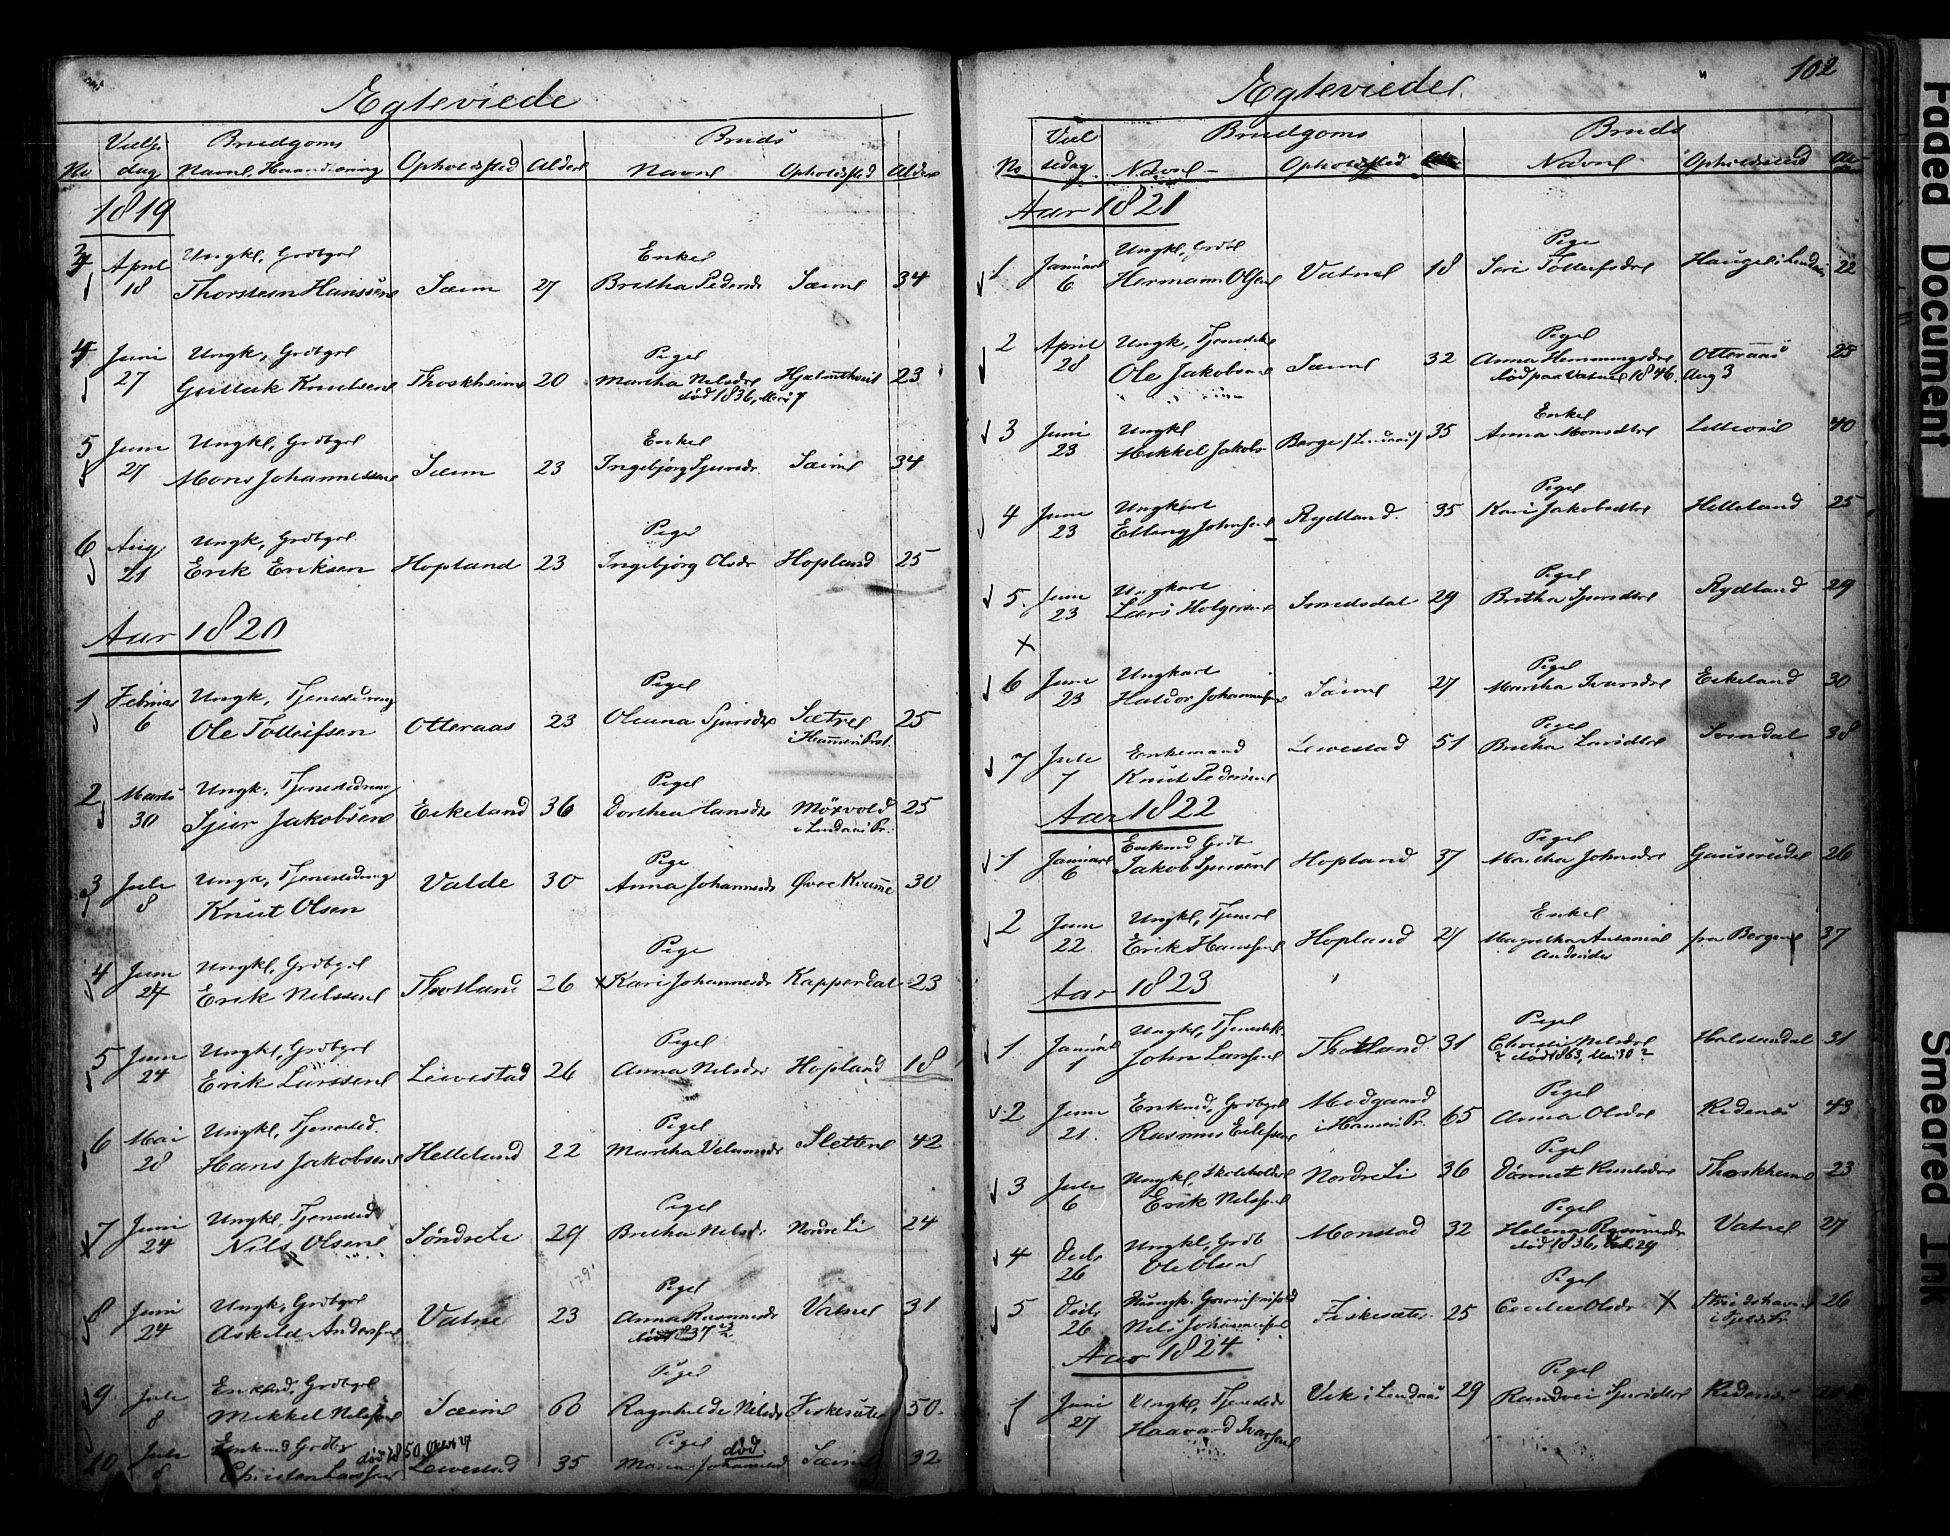 Egteviede
No Vielses dag Brudgoms Navne, Haandtering Opholdsted Alder Bruds Navne Opholdsted Alder
1819
3 April 18 Ungkl, Grdbgr Thorstein Hanssen Sæim 27 Enke Bretha Pedersdr Sæim 34
4 Juni 27 Ungk, Grdbgr Gullak Knudsen Thoskheim 20 Pige Martha Nelsdr Hjelmtveit 23
død 1836, Mai 7
5 Juni 27 Ungkl, Grdbgr Mons Johannessen Sæim 23 Enke Ingebjörg Sjursdr Sæim 34
6 Aug. 21 Ungk, Grdbgr Erik Eriksen Hopland 23 Pige Ingebjörg Olsdr Hopland 25
Aar 1820
1 Februar 6 Ungk, Tjenestedreng Ole Tolleifsen Otteraas 23 Pige Oluna Sjursdr Sætre 25
i Hammer Prst.
2 Marts 30 Ungk, Tjenestedreng Sjur Jakobsen Eikeland 36 Pige Dorthea Hansdr Möxvold 25
i Lindaas Pr.
3 Juli 8 Ungk, Tjenestedreng Knut Olsen Valde 30 Pige Anna Johannesdr Øvre Kvamme 30
4 Juni 24 Ungkl, Grdbgr Erik Nelssen Thotland 26 Pige Kari Johannesdr Kapperdal 23
5 Juni 24 Ungkl, Grdbgr Erik Larssen Leivestad 26 Pige Anna Nelsdr Hopland 18
6 Mai 28 Ungkl, Tjenested. Hans Jakobsen Helleland 22 Pige Martha Slettene 42
7 Juni 24 Ungkl, Tjenested Nils Olsen Söndre Li 29 Pige Bretha Nelsdr Nordre Li 24
8 Juni 24 Ungk, Grdbgr Askild Anderssen Vatne 23 Pige Anna Rasmusdr Vatne 31
død 1837
9 Juli 8 Enkmd, Grdbgr Mikkel Nelssen Sæim 60 Pige Ragnhilde Nilsdr Fiskesæter 50
10 Juli 8 Enkmd Grdbr død 1850 Oktbr 27 Christen Larssen Leivestad 35 Pige død. Maria Johannesd Sæim 32
Egteviede 102
No Vielsedag Brudgoms Navne Opholdsted Bruds Navne Opholdssted Alder
Aar 1821
1 Januar 6 Ungkl, Grdbr Hermann Olsen Vatne 18 Pige Siri Tolleifsdr Hauge i Lindaas 22
2 April 28 Ungk, Tjenestedr Ole Jakobsen Sæim 32 Pige Anna Hemmingsdr Otteraas 25
død paa Vatne 1846. Aug 3
3 Juni 23 Ungkl Mikkel Jakobs. Berge /Lindaas/ 35 Enke Anna Monsdtr Litleoxe 40
4 Juni 23 Ungkarl Elling Johnsen Rydland. 35 Pige Kari Jakobsdtr Helleland 25
5. Juni 23 Ungkarl Lars Holgersen Isundsdal 29 Pige Britha Sjursdtr Rydland 29
6 Juni 23 Ungkarl Haldor Johannessen Sæim 27 Pige Martha Ivarsdr Eikeland 30
7 Juli 7 Enkemand Knut Pedersen Leivestad 51 Pige Bretha Larsdtr Isundal 38
Aar 1822
1 Januar 6 Enkmd Grdb Jakob Sjursen Hopland 37 Pige Martha Johnsdr 26
2 Juni 22 Ungkl, Tjener Erik Hanssen Hopland 27 Enke Magretha Antamia Andrisdr fra Bergen 37
Aar 1823
1 Januar 1 Ungkl, Tjenestek. John Larssen Thotland 31 Pige Christi Nelsdr Halstendal 31
? død 1863, Mai 30 ?
2 Juni 21. Enkmd, Grdbgr Rasmus Eilefsen Midgaard i Hammer Pr. 65 Pige Anna Olsdr Ridenes 43
3 Juli 6 Ungkl, Skoleholder Erik Nelssen Nordre Li 36 Pige Dönnet Knudsdr Thoskheim 23
4 Decb. 26 Ungkl, Grdb Ole Olsen Monstad 32 Pige Helena Rasmusdr Vatne 27
død 1836, 29
5 Decb. 26 Nils Johannessen Fiskesæter 25 Pige Cecilie Olsdr 26
Aar 1824
1 Juni 27 Ungkl, Tjenestedr Haavard Ivarssen Vik i Lindaas 29 Pige Randvei Sjursdtr Ridenes
Faded Document
Smeared Ink